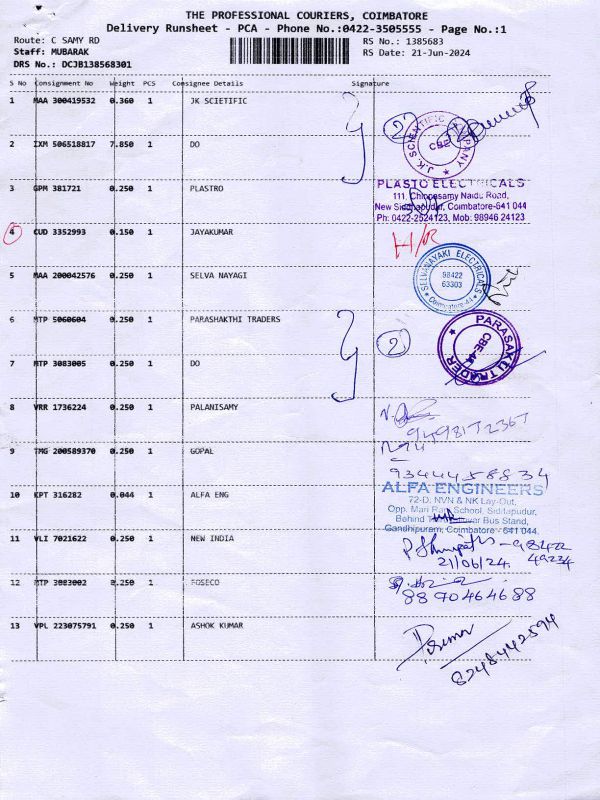 THE PROFESSIONAL COURIERS, COIMBATORE
Delivery Runsheet - PCA - Phone No.:0422-3505555 - Page No.:1
Route: C SAMY RD RS No.: 1385683
Staff: MUBARAK RS Date: 21-Jun-2024
DRS No.: DCJB138568301
S No Consignment No Weight PCS Consignee Details Signature
1 MAA 300419532 0.360 1 JK SCIETIFIC
2
J.K SCIENTIFIC COMPANY
CBE
2 IXM 506518817 7.850 1 DO
3 GPM 381721 0.250 1 PLASTRO
PLASTO ELECTRICALS
111, Chinnasamy Naidu Road,
New Siddhapudur, Coimbatore-641 044
Ph: 0422-2524123, Mob: 98946 24123
4 CUD 3352993 0.150 1 JAYAKUMAR
H/R
5 MAA 200042576 0.250 1 SELVA NAYAGI
SELVANAYAKI ELECTRICALS
98422
63303
Coimbatore-44
6 MTP 5060604 0.250 1 PARASHAKTHI TRADERS
2
PARASAKTI TRADER
CBE-44
7 MTP 3083005 0.250 1 DO
8 VRR 1736224 0.250 1 PALANISAMY
9 TMG 200589370 0.250 1 GOPAL
9344458834
10 KPT 316282 0.044 1 ALFA ENG
ALFA ENGINEERS
72-D, NVN & NK Lay-Out,
Opp. Mari Raj School, Siditapudur,
Behind Bus Stand,
Gandhipuram, Coimbatore - 641 044.
11 VLI 7021622 0.250 1 NEW INDIA
98422
21/06/24. 49234
12 MTP 3083002 0.250 1 FOSECO
8890464688
13 VPL 223075791 0.250 1 ASHOK KUMAR
8248442594